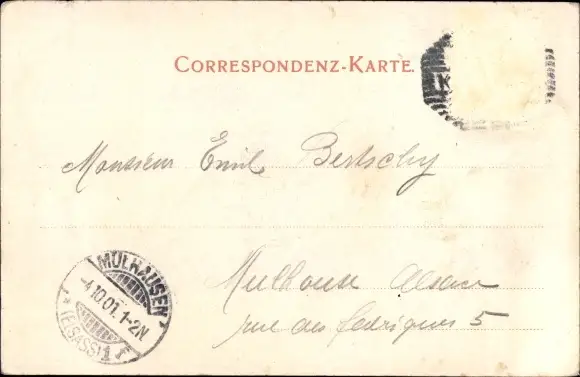 CORRESPONDENZ-KARTE.
Monsieur Emil Bertschy
Mulhouse Alsace
rue des 5
MÜLHAUSEN
-4.10.01. 1-2N
(ELSASS) 1